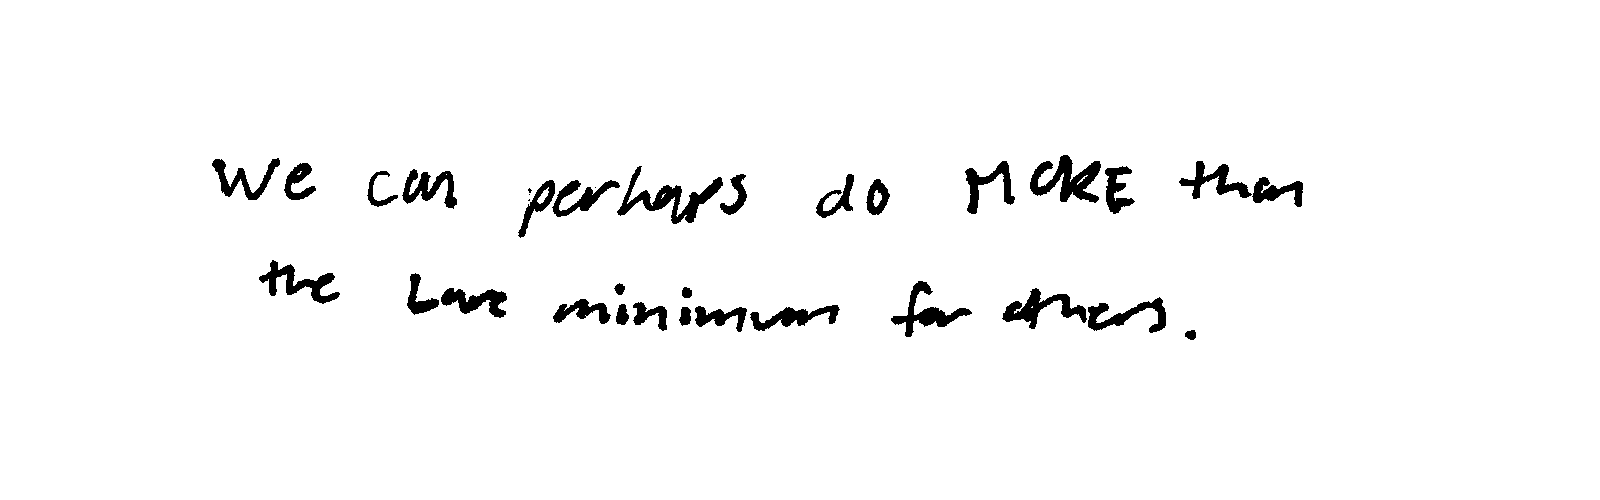 We can perhaps do MORE than
the bare minimum for others.